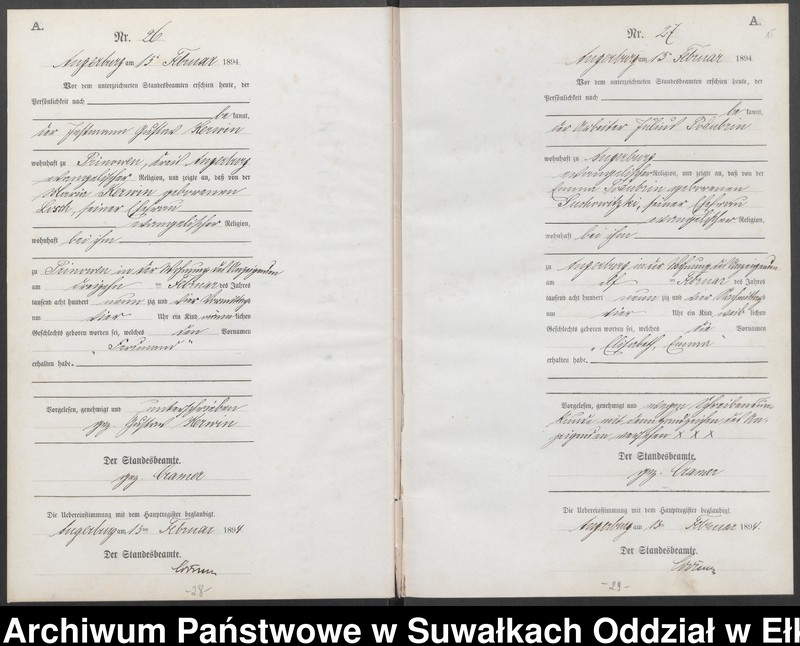 A.
Nr. 26
Angerburg am 15 Februar 1894
Vor dem unterzeichneten Standesbeamten erschien heute, der
Persönlichkeit nach
be kannt,
der Gustav Kerwin
wohnhaft zu Angerburg
evangelischer Religion, und zeigte an, daß von der
Maria Kerwin geborenen
seiner Ehefrau
evangelischer Religion,
wohnhaft bei ihm
zu in der Wohnung des Anzeigenden
am dreizehn ten Februar des Jahres
tausend acht hundert neun zig und vier Vormittags
um vier Uhr ein Kind männ lichen
Geschlechts geboren worden sei, welches den Vornamen
„Ferdinand“
erhalten habe.
Vorgelesen, genehmigt und unterschrieben
gez. Gustav Kerwin
Der Standesbeamte.
gez. Cramer
Die Uebereinstimmung mit dem Hauptregister beglaubigt.
Angerburg am 15ten Februar 1894
Der Standesbeamte.
-28-
A.
Nr. 27
Angerburg am 15 Februar 1894
Vor dem unterzeichneten Standesbeamten erschien heute, der
Persönlichkeit nach
be kannt,
der Arbeiter Julius
wohnhaft zu Angerburg
evangelischer Religion, und zeigte an, daß von der
Emma geborenen
seiner Ehefrau
evangelischer Religion,
wohnhaft bei ihm
zu Angerburg in der Wohnung des Anzeigenden
am elf ten Februar des Jahres
tausend acht hundert neun zig und vier
um vier Uhr ein Kind weib lichen
Geschlechts geboren worden sei, welches die Vornamen
„Elisabeth, Emma“
erhalten habe.
Vorgelesen, genehmigt und wegen Schreibensun-
kunde mit dem Handzeichen des An-
zeigenden versehen X X X
Der Standesbeamte.
gez. Cramer
Die Uebereinstimmung mit dem Hauptregister beglaubigt.
Angerburg am 15 Februar 1894.
Der Standesbeamte.
-29-
Archiwum Państwowe w Suwałkach Oddział w Ełk